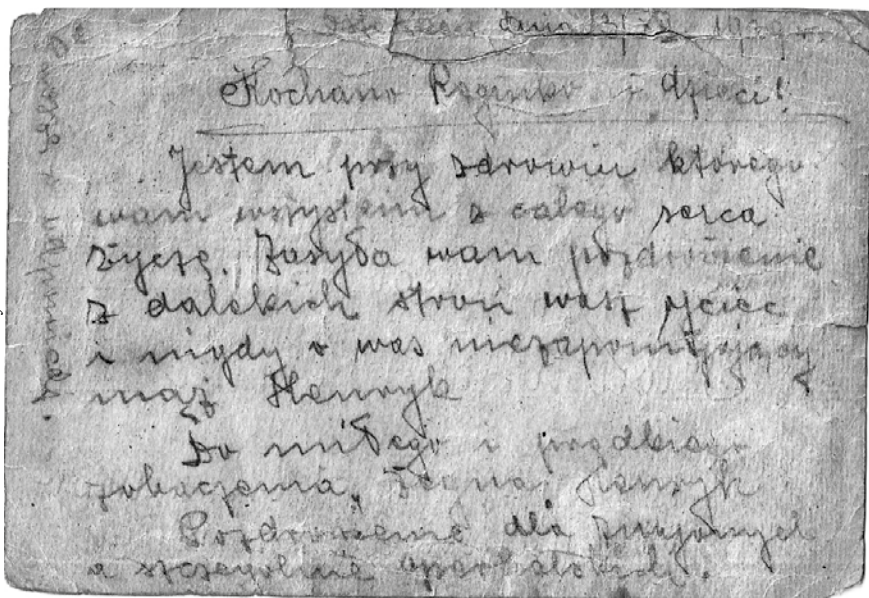 dnia 1939 r.
Kochano Reginko i dzieci!
Jestem przy zdrowiu którego
wam wszystkim z całego serca
życzę. Zasyła wam pozdrowienie
z dalekich stron wasz ojciec
i nigdy o was niezapominający
mąż Henryk
Do miłego i prędkiego
zobaczenia, Żegna Henryk
Pozdrowienie dla znajomych
a szczególnie